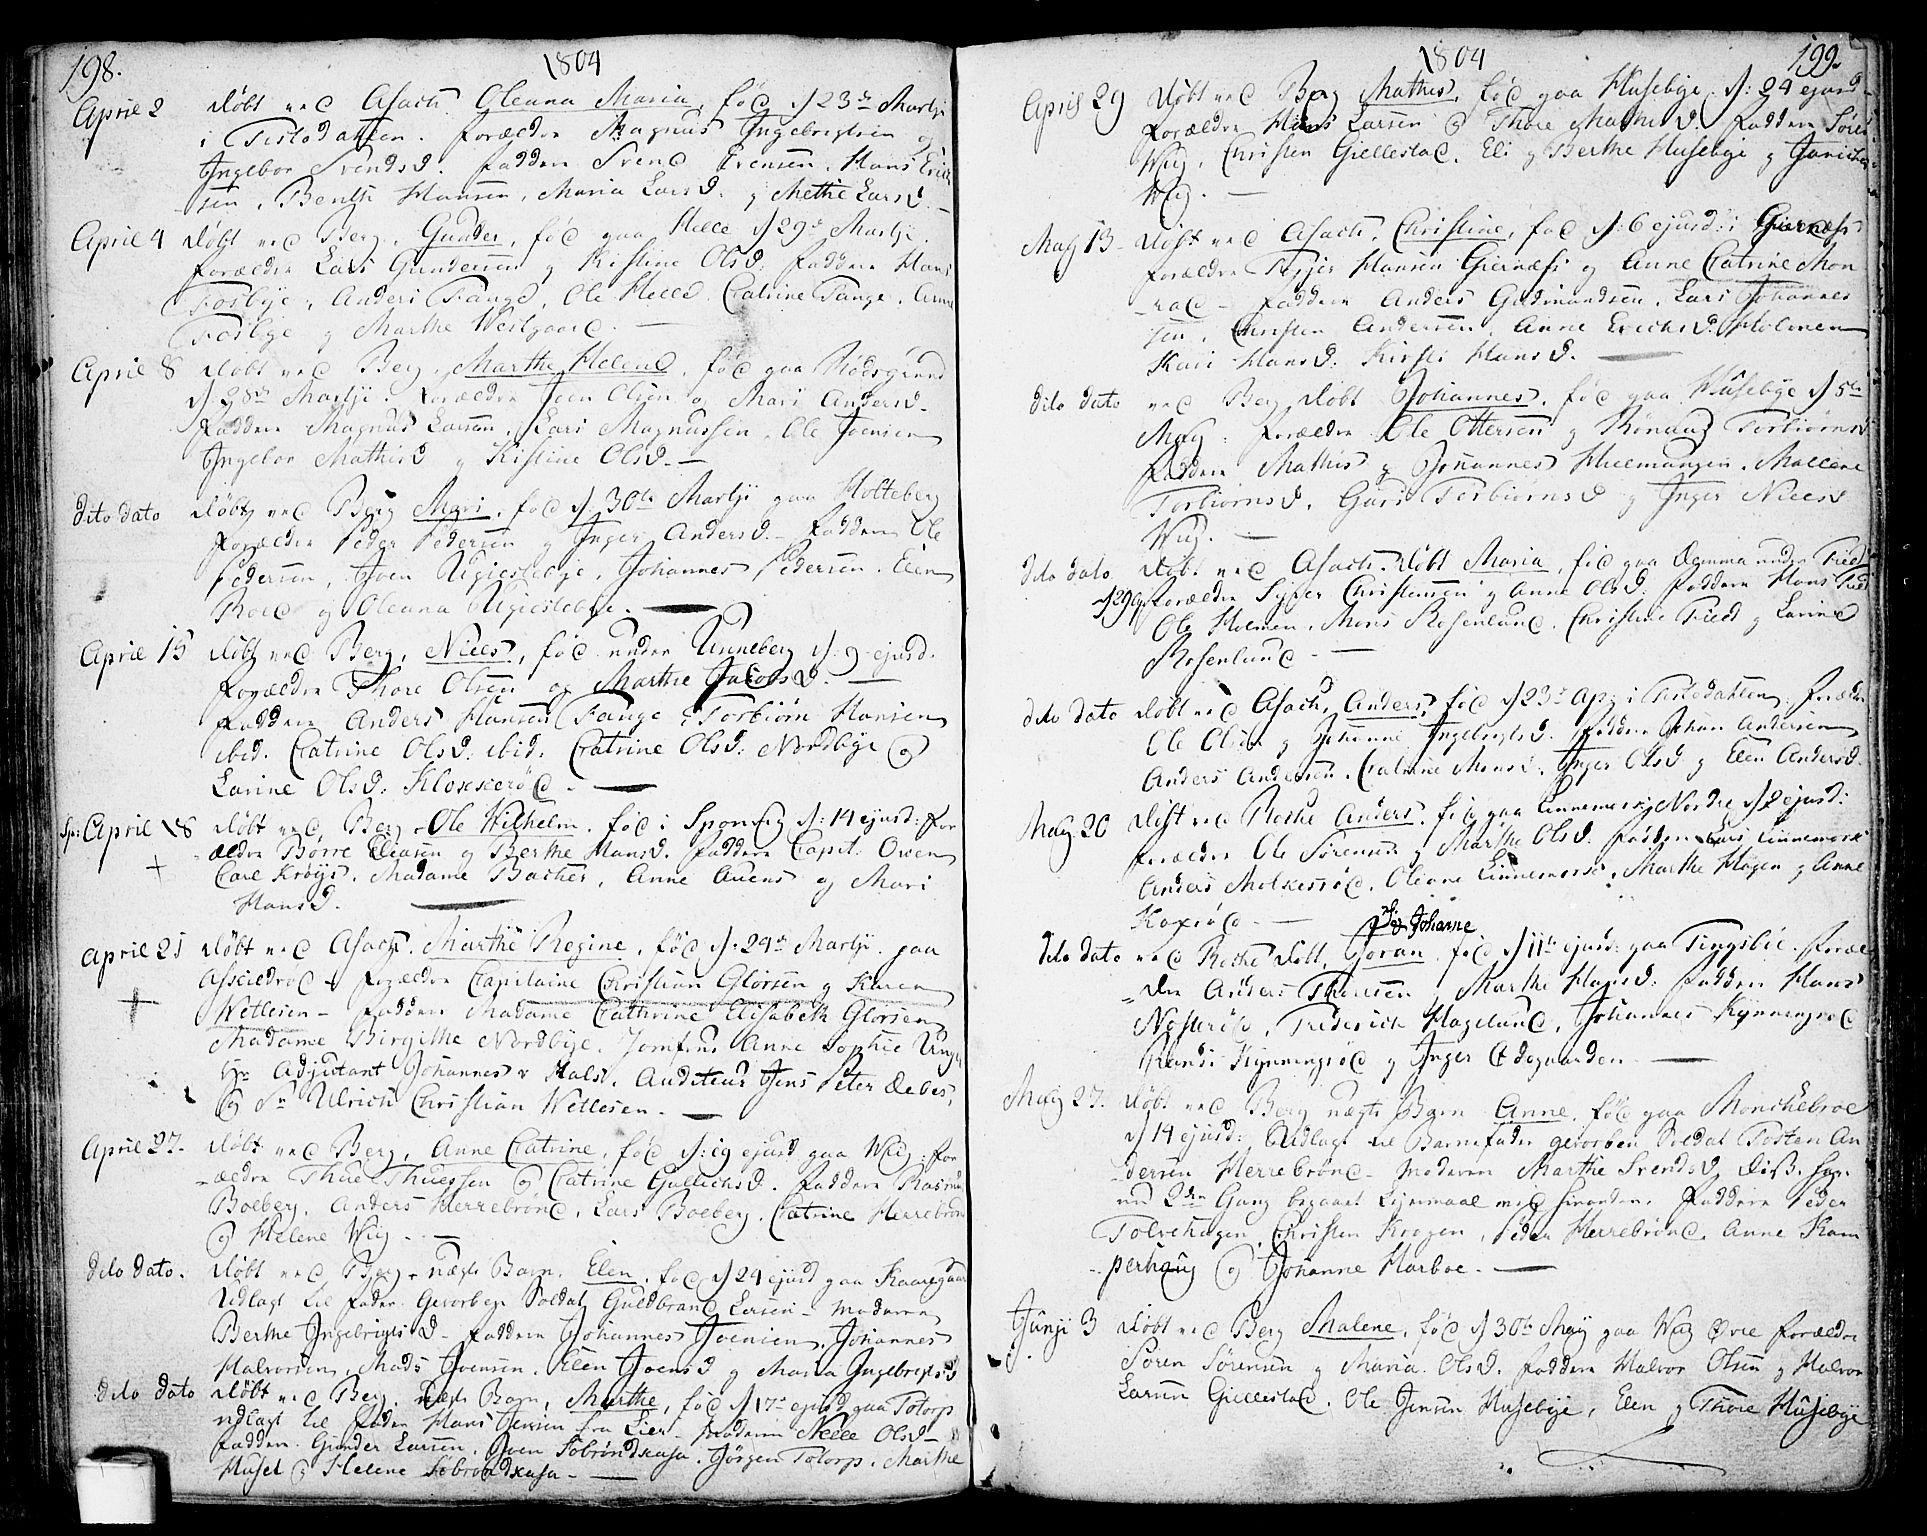 198.
1804
April 2 Døbt ved Asach Oleana Maria, fød d 23de Martji
i Tistedahlen. forældre Magnus Ingebregtsen og
Ingebor Svendsd. faddere Svend Evensen, Hans Erich
sen, Benth Hansen, Maria Larsd. og Methe Larsd. –
April 4 Døbt ved Berg, Gunder, fød paa Helle d 29de Martji.
forældre Lars Gundersen og Kistine Olsd: faddere Hans
Fosbye, Anders Tange, Ole Helle, Catrine Tange, Anne
Fosbye og Marthe Westgaard. –
April 8 Døbt ved Berg, Marthe Helene, fød paa Rødsgrind
d 28de Martji. forældre Joen Olsen og Mari Andersd.
faddere Magnus Larsen, Lars Magnussen, Ole Joensen
Ingebor Mathisd og Kistine Olsd. –
dito dato Døbt ved Berg Mari, fød d 30te Martji paa Holteberg
forældre Peder Pedersen og Inger Andersd. – faddere Ole
Pedersen, Joen Wgieslebye, Johannes Pedersen, Elen
Roed og Oleana Wgieslebye. –
April 15 Døbt ved Berg, Niels, fød under Unneberg d: 9 ejusd.
forældre Thore Olsen og Marthe Jacobsd. –
faddere Anders Hansen Tange, Torbiørn Hansen
ibid. Catrine Olsd. ibid. Catrine Olsd: Nordbye og
Larine Olsd: Klokkerød. –
Sp: April 18 Døbt ved Berg – Ole Wilhelm, fød i Sponvig d: 14 ejusd: for
ældre Børre Eliasen og Berthe Hansd. faddere Capit: Owen
Carl Krøys, Madame Bacher, Anne Auens og Mari
Hansd. –
April 21 Døbt ved Asach, Marthe Regine, fød d: 24de Martji paa
Askeldrød – forældre Capitaine Christian Glørsen og Karen
Wetlesen – faddere Madame Cathrine Elisabeth Glørsen
Madame Birgithe Nordbye, Jomfrue Anne Sophie Unger
Hr Adjutant Johannes v Hals, Auditeur Jens Peter Debes,
og Sr Ulrich Christian Wetlesen. –
April 27. Døbt ved Berg, Anne Catrine, fød d: 19 ejusd paa Wiig: for
ældre Thue Thuessen og Catrine Gullichsd. faddere Rasmus
Boeberg, Anders Herrebrønd, Lars Boeberg, Catrine Herrebrønd
og Helene Wiig. –
dito dato. Døbt ved Berg – uægte Barn, Elen, fød d 24 ejusd paa Kaaregaar
Udlagt til fader Geworben Soldat Guldbrand Larsen – moderen
Berthe Ingebrigtsd – faddere Johannes Joensen, Johannes
Halvorsen, Mads Joensen, Elen Joensd og Maria Ingebregtsd
dito dato Døbt ved Berg, uægte Barn, Marthe, fød d 17de ejusd paa Totorp
udlagt til fader Hans Jensen fra Lier – Moderen Nille Olsd –
faddere Gunder Larsen, Joen Sobrøndkasa, Jørgen Totorp, Marthe
Husel og Helene Sobrøndkasa. –
1804
199.
April 29 Døbt ved Berg Mathis, fød paa Husebye d: 24 ejusd –
forældre Hans Larsen og Thore Mathisd. faddere Søren
Wiig, Christen Giellestad, Eli og Berthe Husebye og Janiche
Wiig. –
May 13 – Døbt ved Asach, Christine, fød d: 6 ejusd: i Giernæss
forældre Tosjer Hansen Giernæss og Anne Catrine Mon
rad – faddere Anders Gudmundsen, Lars Johannes
sen, Christen Andersen, Anne Erichsd. Holmen
Kari Hansd: Kirsti Hansd. –
dito dato ved Berg Døbt Johannes, fød paa Husebye d 5te
May: forældre Ole Ottersen og Rønnaug Torbiørnsd
faddere Mathis og Johannes Hielmungen, Mallene
Torbiørnsd, Guri Torbiørnsd og Inger Nielsd
Wiig. –
dito dato Døbt ved Asach. Døbt Maria, fød paa Demma under Tied
d 29 forældre Syver Christensen og Anne Olsd. faddere Hans Tied
Ole Holmen, Mons Rosenlund, Christine Tied og Larine
Rosenlund –
dito dato Døbt ved Asach, Anders, fød d 23de Ap: i Tistedahlen: forældre
Ole Olsen og Johanne Ingebregtsd. faddere Johan Andersen
Anders Andersen, Catrine Monsd. Inger Olsd og Elen Andersd.
May 20 Døbt ved Rokke Anders, fød paa Linnemark Nordre d 2 ejusd:
forældre Ole Sørensen og Marthe Olsd: faddere Lars Linnemark
Anders Molkesrød, Oleane Linnemark, Marthe Hagen og Anne
Koxrød –
Johanne
dito dato ved Rokke Døbt, Joran, fød d 11te ejusd: paa Tingsbie. foræl
dre Anders Thuesen, Marthe Hansd. faddere Hans
Nøsterød, Frederich Hagelund, Johannes Kynningrød
Randi Kynningsrød og Inger Ødegaarden –
May 27. Døbt ved Berg uægte Barn Anne, fød paa Monchebroe
d 14 ejusd: Udlagt til Barnefader geworben Soldat Tosten An
dersen Herrebrønd – moderen Marthe Svendsd, Diss. har
nu 2den Gang begaaet Leiermaal med hinanden. faddere Peder
Tolvehagen, Christen Krogen, Peder Herrebrønd, Anne Kam
perhaug og Johanne Harboe. –
Junji 3 Døbt ved Berg Malene, fød d 30te May paa Wiig Øvre forældre
Søren Sørensen og Maria Olsd. faddere Halvor Olsen og Halvor
Larsen Giellestad, Ole Jensen Husebye, Elen og Thore Husebye